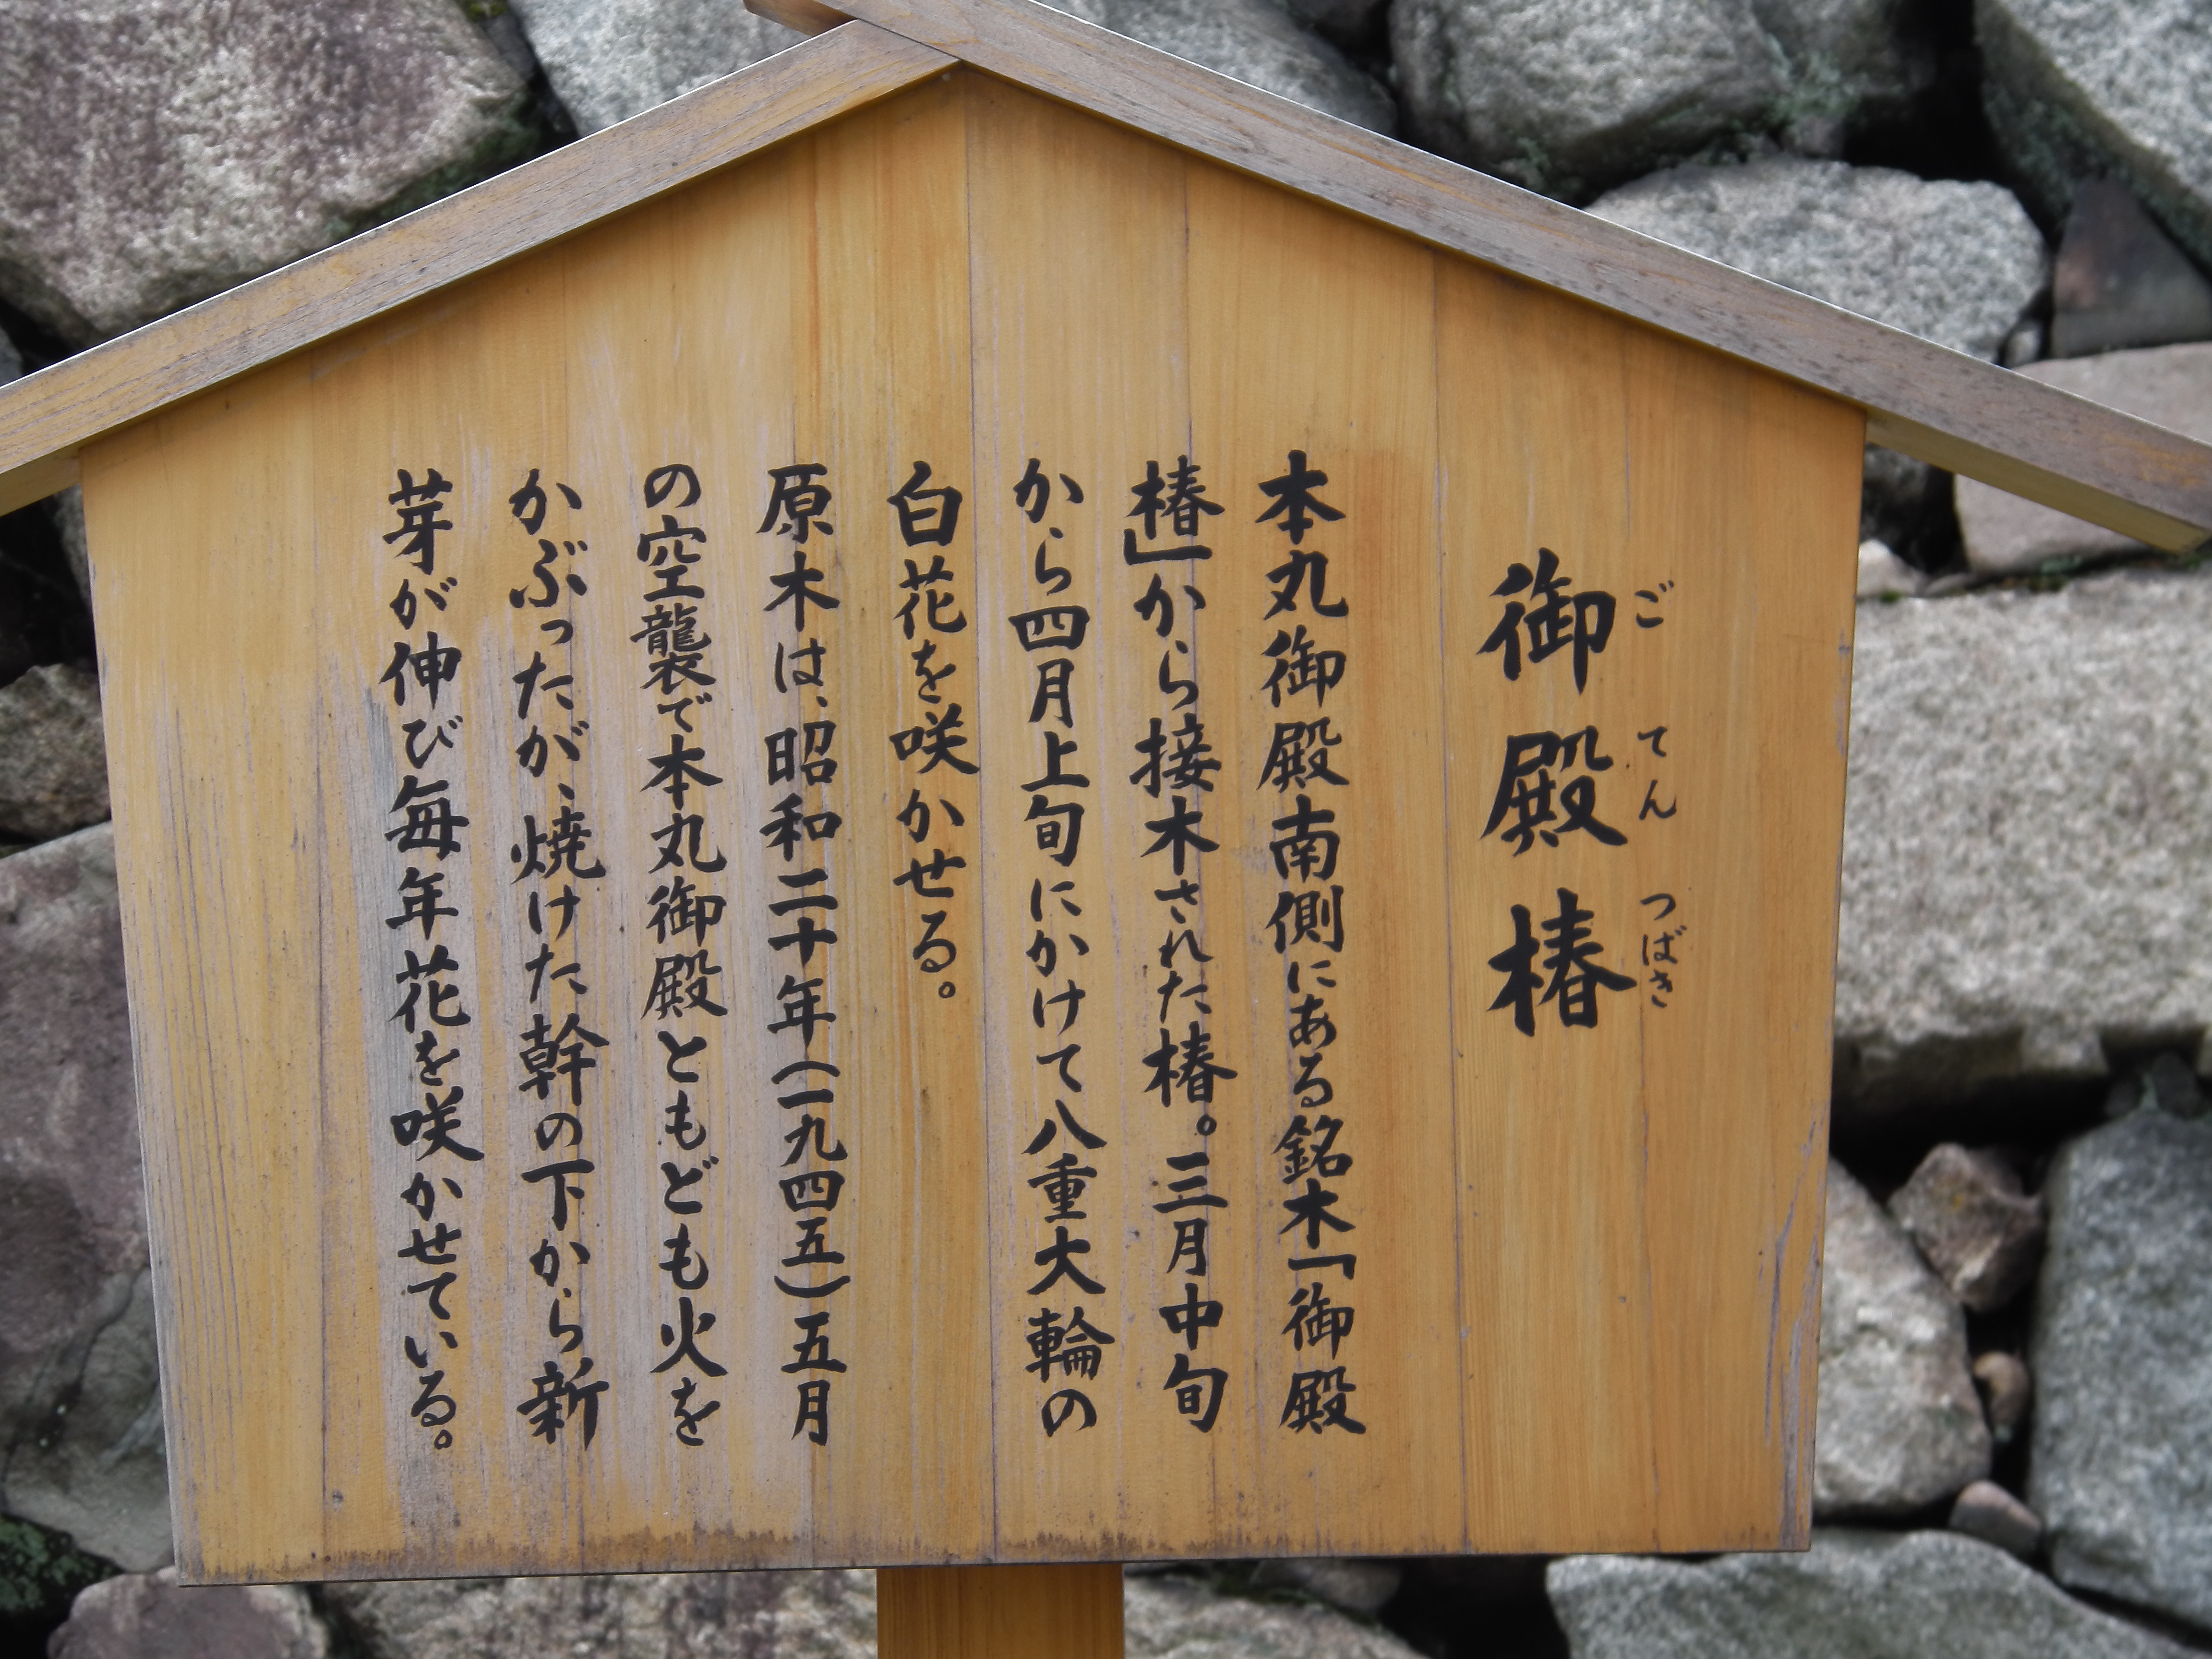 御殿椿
ごてんつばき
本丸御殿南側にある銘木「御殿
椿」から接木された椿。三月中旬
から四月上旬にかけて八重大輪の
白花を咲かせる。
原木は、昭和二十年(一九四五)五月
の空襲で本丸御殿ともども火を
かぶったが、焼けた幹の下から新
芽が伸び毎年花を咲かせている。